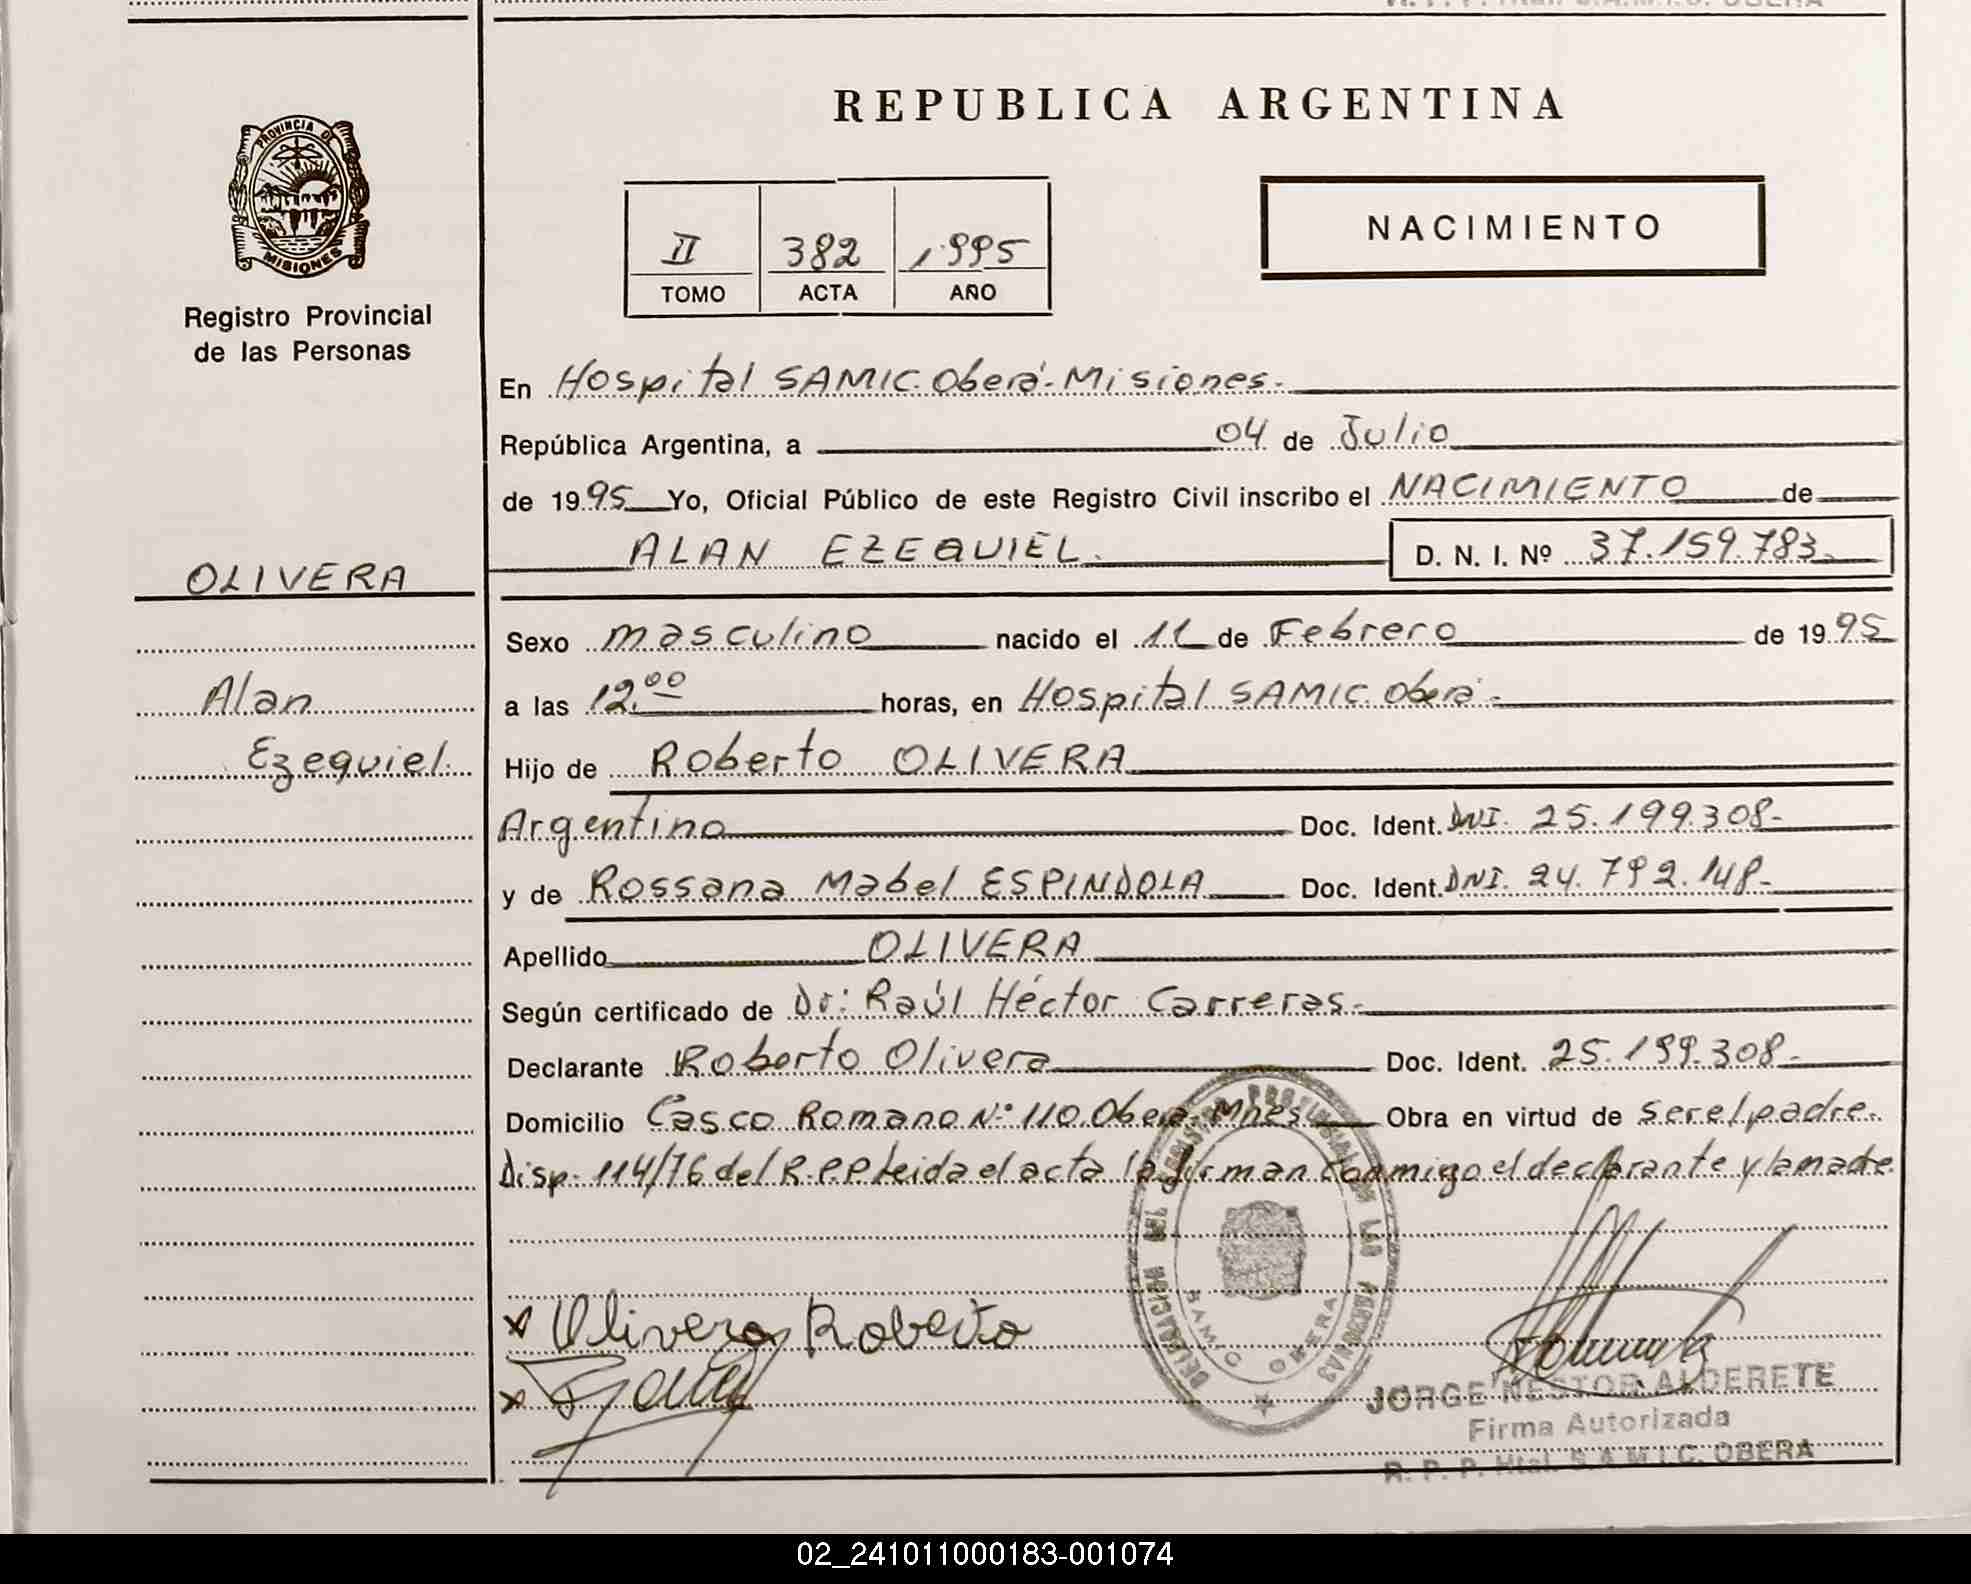 PROVINCIA DE
MISIONES
Registro Provincial
de las Personas
OLIVERA
Alan
Ezequiel.
REPUBLICA ARGENTINA
II 382 1995
TOMO ACTA AÑO
NACIMIENTO
En Hospital SAMIC. Oberá-Misiones.
República Argentina, a 04 de Julio
de 1995 Yo, Oficial Público de este Registro Civil inscribo el NACIMIENTO de
ALAN EZEQUIEL. D. N. I. Nº 37.159.783.
Sexo masculino nacido el 11 de Febrero de 1995
a las 12.00 horas, en Hospital SAMIC. Oberá-
Hijo de Roberto OLIVERA
Argentino Doc. Ident. DNI. 25.199.308-
y de Rossana Mabel ESPINDOLA Doc. Ident. DNI. 24.792.148-
Apellido OLIVERA
Según certificado de Dr: Raúl Héctor Carreras.
Declarante Roberto Olivera Doc. Ident. 25.199.308-
Domicilio Casco Romano Nº 110. Oberá. Mnes Obra en virtud de ser el padre.
Disp. 114/76 del R.P.P Leida el acta la firman conmigo el declarante y la madre
DELEGACION DEL REGISTRO PROVINCIAL DE LAS PERSONAS
SAMIC OBERA
x Olivera Roberto
x
JORGE NESTOR ALDERETE
Firma Autorizada
R. P. P. Htal. S.A.M.I.C. OBERA
02_241011000183-001074